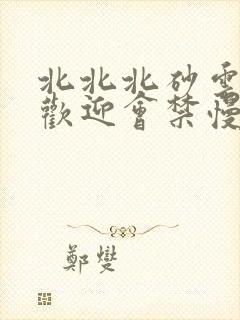 北北北砂雲
歡迎會禁慢
鄭燮